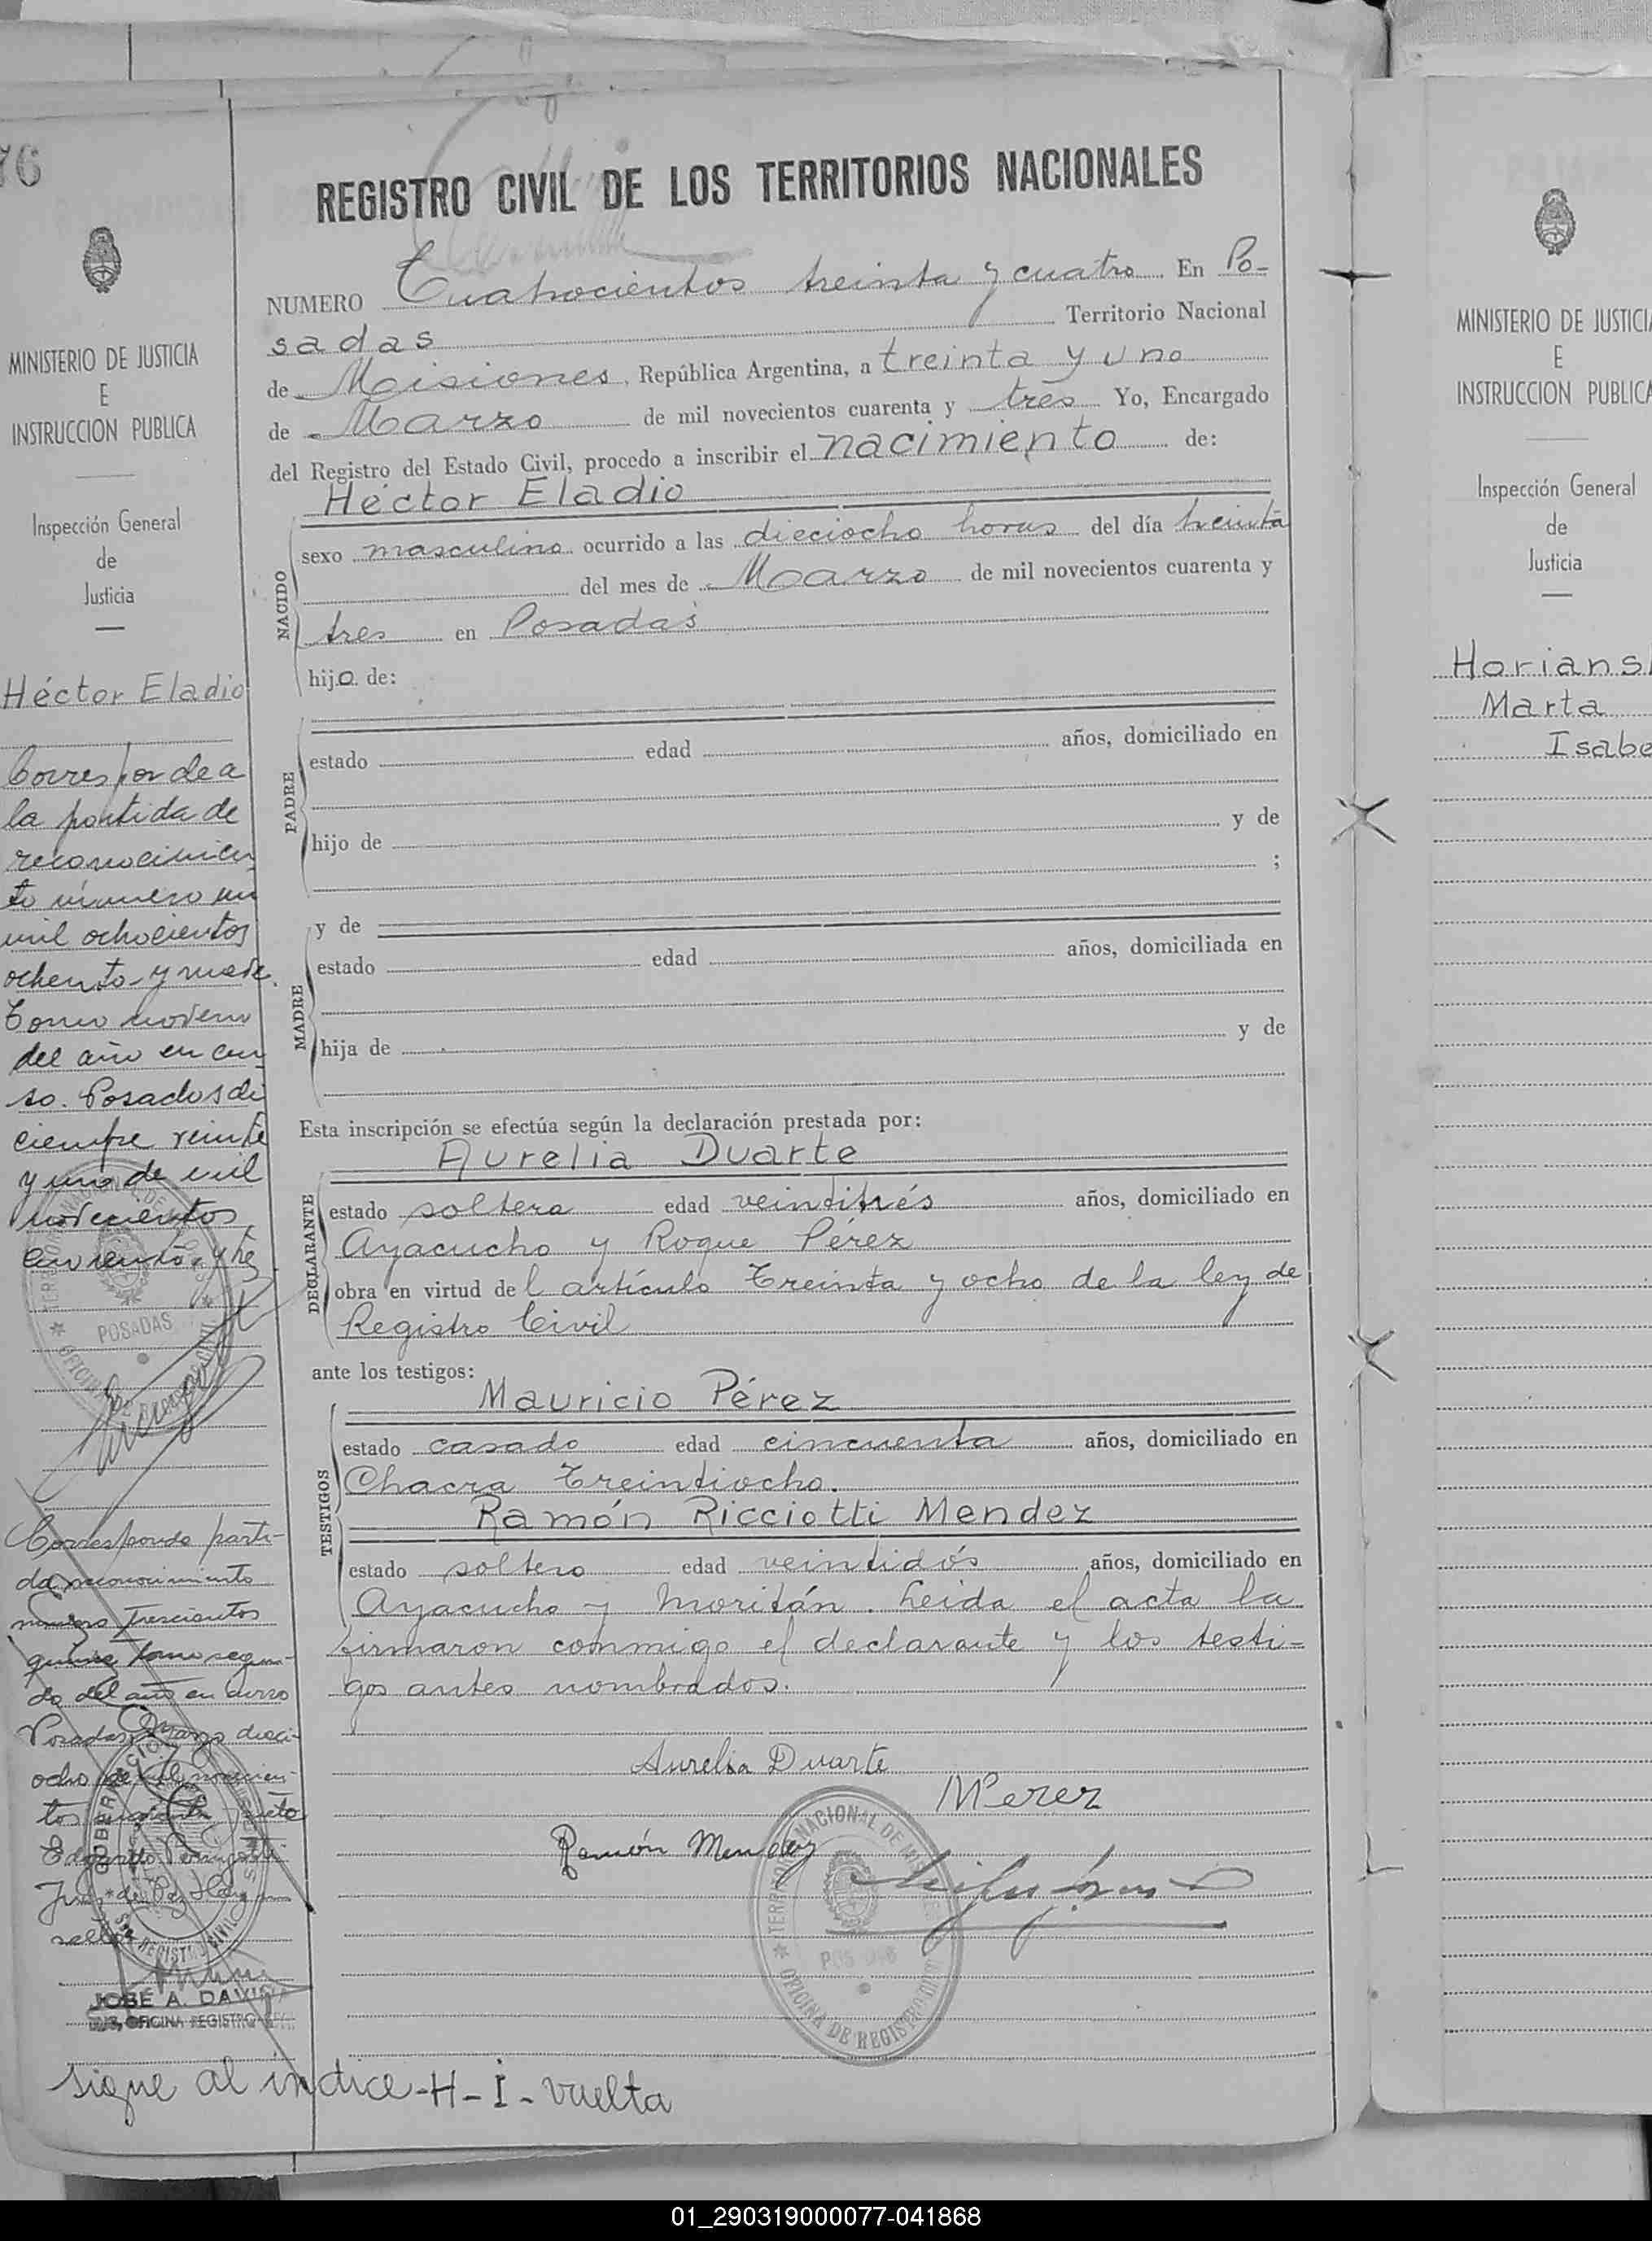 76
MINISTERIO DE JUSTICIA
E
INSTRUCCION PUBLICA
Inspección General
de
Justicia
Héctor Eladio
Corresponde a
la partida de
reconocimien
to número un
mil ochocientos
ochenta y nueve
Tomo noveno
del año en cur
so. Posadas di
ciembre veinte
y uno de mil
novecientos
cuarenta y tres
POSADAS
Corresponde parti-
da reconocimiento
número trescientos
quince tomo segun-
do del año en curso
Posadas, Marzo dieci-
ocho de mil novecien-
tos cuarenta y siete
Juez de Paz Hay un
sello
JOSÉ A. DAV
OFICINA REGISTRO
REGISTRO CIVIL DE LOS TERRITORIOS NACIONALES
NUMERO Cuatrocientos treinta y cuatro En Po-
sadas Territorio Nacional
de Misiones, República Argentina, a treinta y uno
de Marzo de mil novecientos cuarenta y tres Yo, Encargado
del Registro del Estado Civil, procedo a inscribir el nacimiento de:
Héctor Eladio
NACIDO
sexo masculino ocurrido a las dieciocho horas del día treinta
del mes de Marzo de mil novecientos cuarenta y
tres en Posadas
hijo de:
PADRE
estado edad años, domiciliado en
hijo de y de
;
y de
MADRE
estado edad años, domiciliada en
hija de y de
Esta inscripción se efectúa según la declaración prestada por:
Aurelia Duarte
DECLARANTE
estado soltera edad veintitrés años, domiciliado en
Ayacucho y Roque Pérez
obra en virtud del artículo Treinta y ocho de la ley de
Registro Civil
ante los testigos:
Mauricio Pérez
TESTIGOS
estado casado edad cincuenta años, domiciliado en
Chacra Treintiocho.
Ramón Ricciotti Mendez
estado soltero edad veintidós años, domiciliado en
Ayacucho y Moritán. Leida el acta la
firmaron conmigo el declarante y los testi-
gos antes nombrados.
Aurelia Duarte
MPerez
Ramón Mendez
TERRITORIO NACIONAL DE MISIONES
POSADAS
OFICINA DE REGISTRO CIVIL
sigue al indice-H-I-vuelta
MINISTERIO DE JUSTICIA
E
INSTRUCCION PUBLICA
Inspección General
de
Justicia
Horians
Marta
Isabe
01_290319000077-041868